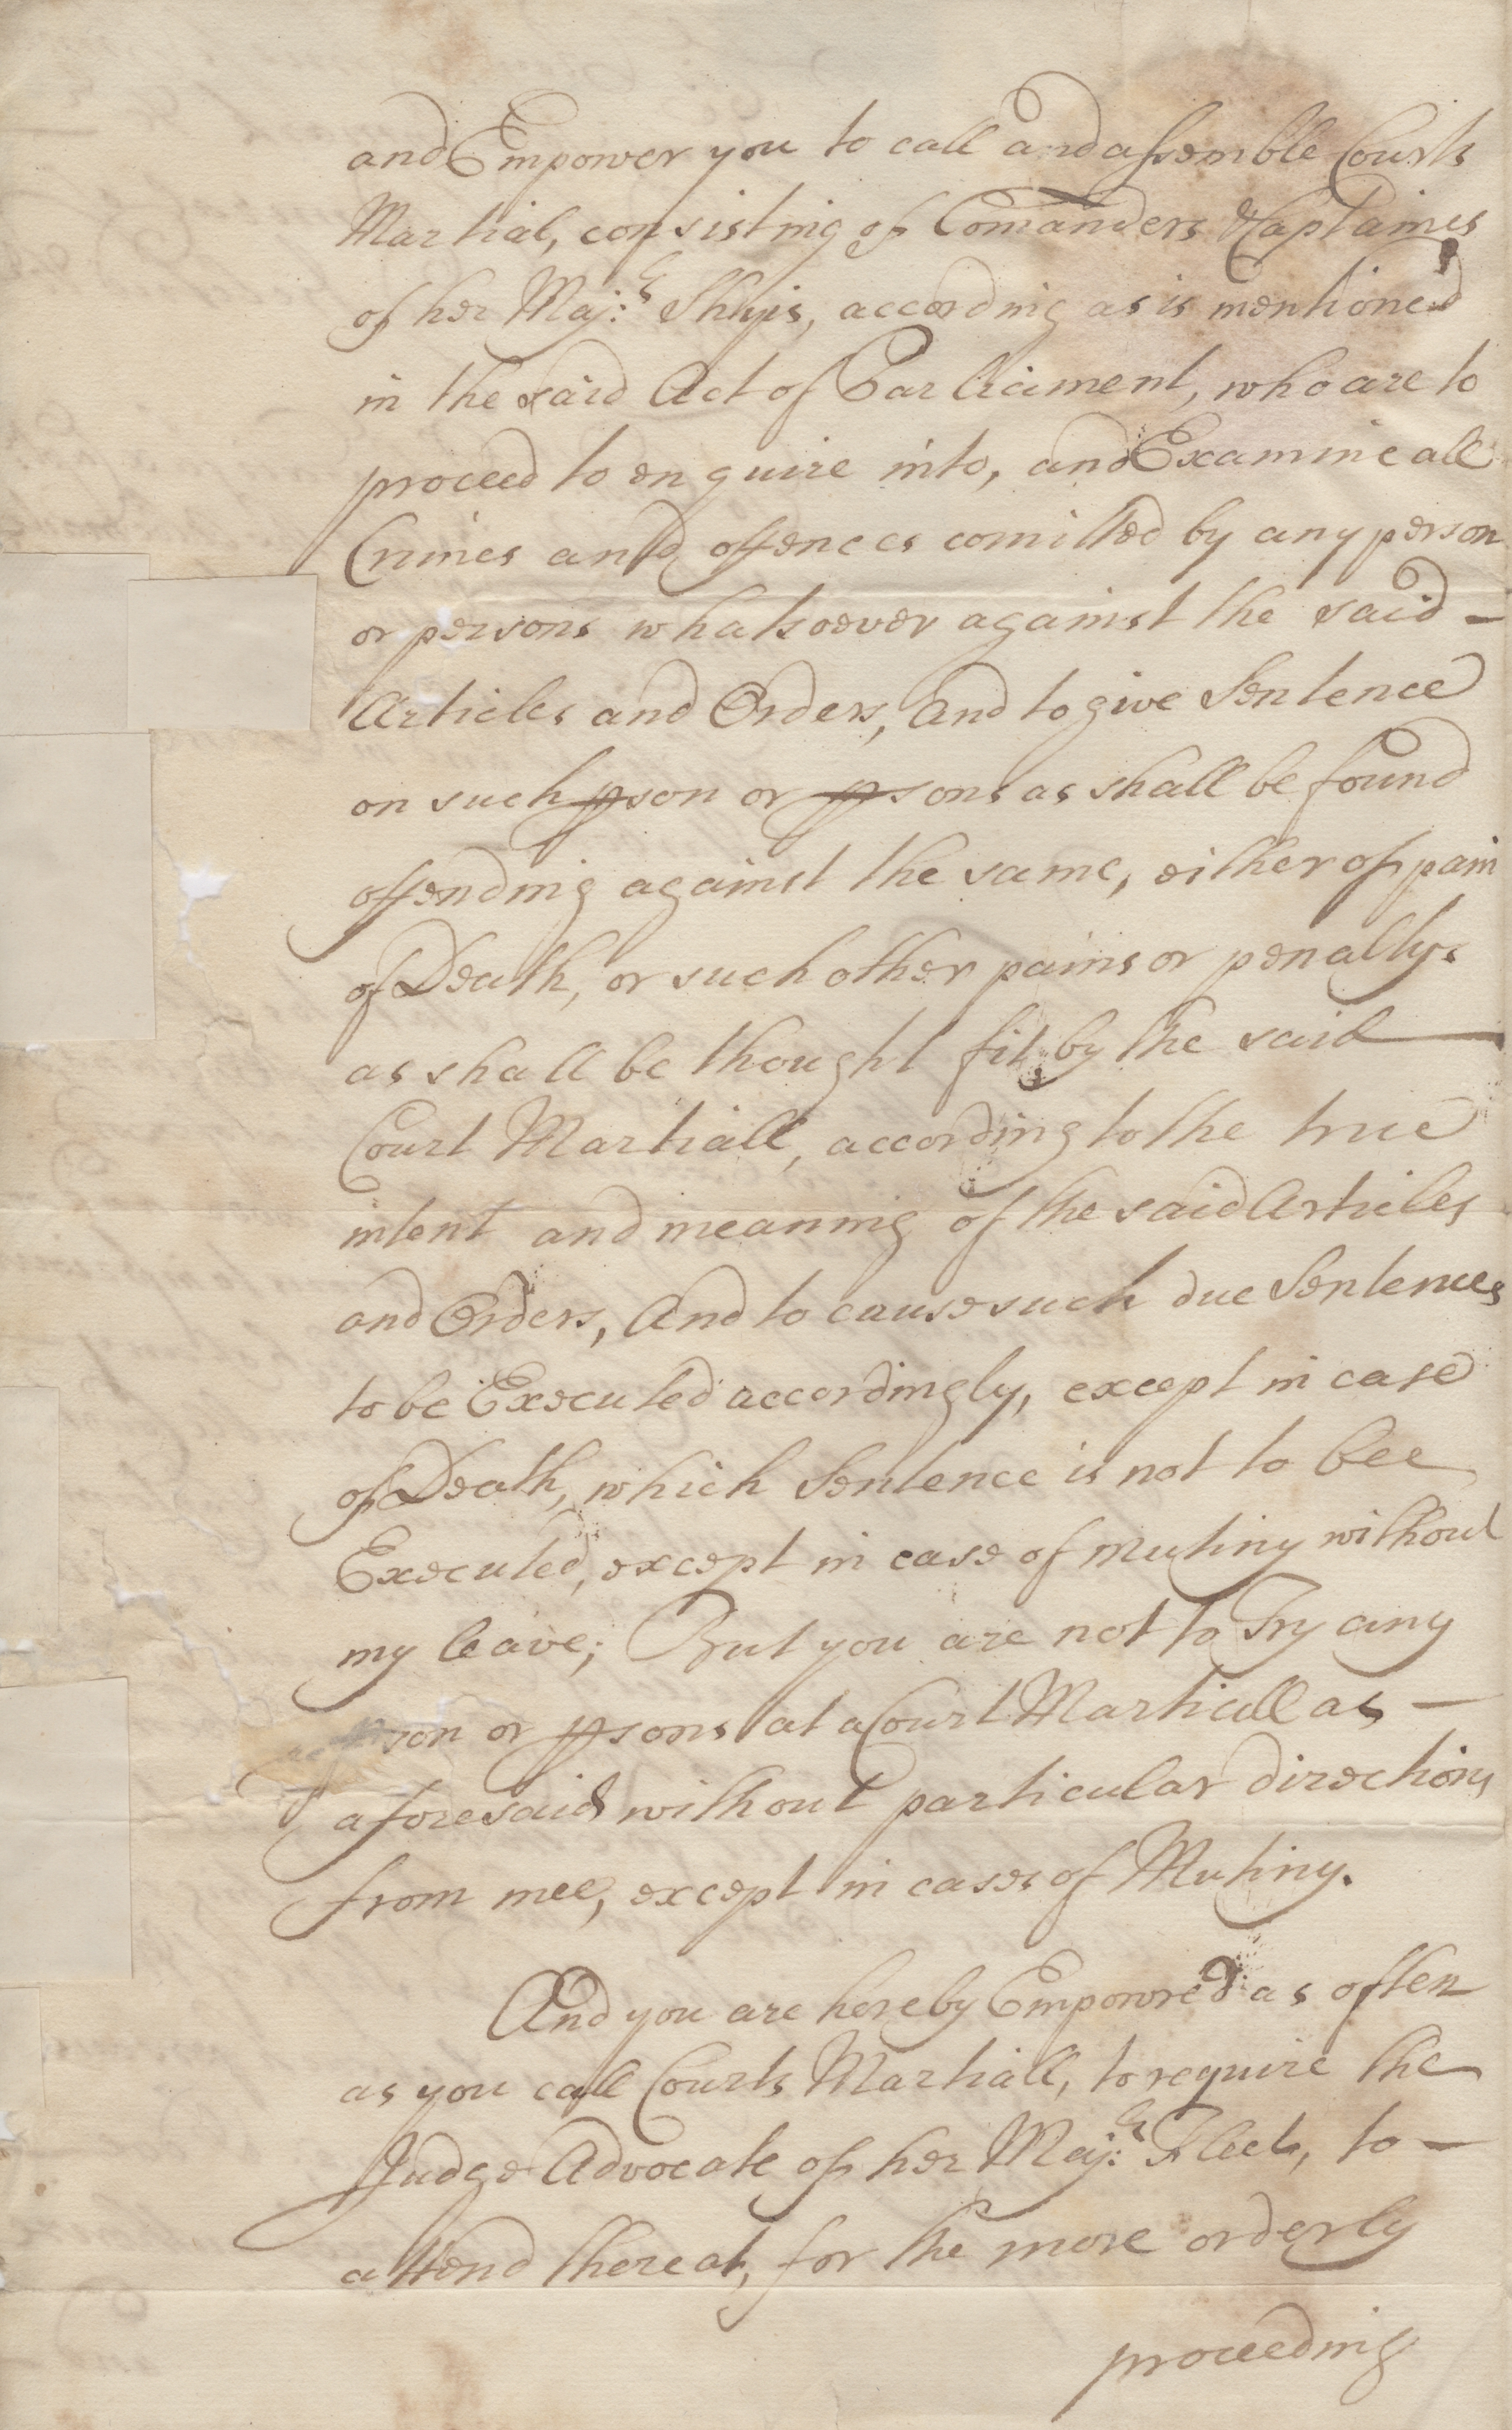 and Empower you to call and assemble Courts
Martial, consisting of Comanders & Captaines
of her Maj:ts Shipis, according as is mentioned
in the said Act of Parliament, who are to
proceed to enquire into, and Examine all
Crimes and offences comitted by any person
or persons whatsoever against the said —
Articles and Orders, And to give Sentence
on such pson or psons as shall be found
offending against the same, either of pain
of Death, or such other pains or penaltys
as shall be thought fit by the said —
Court Martiall, according to the true
intent and meaning of the said Articles
and Orders, And to cause such due Sentences
to be Executed accordingly, except in case
of Death, which Sentence is not to bee
Executed, except in case of Mutiny without
my leave; But you are not to Try any
pson or psons at a Court Martiall as —
aforesaid without particular directions
from mee, except in cases of Mutiny.
And you are hereby Empowred as often
as you call Courts Martiall, to require the
Judge Advocate of her Maj:ts Fleet, to —
attend thereat, for the more orderly
proceeding